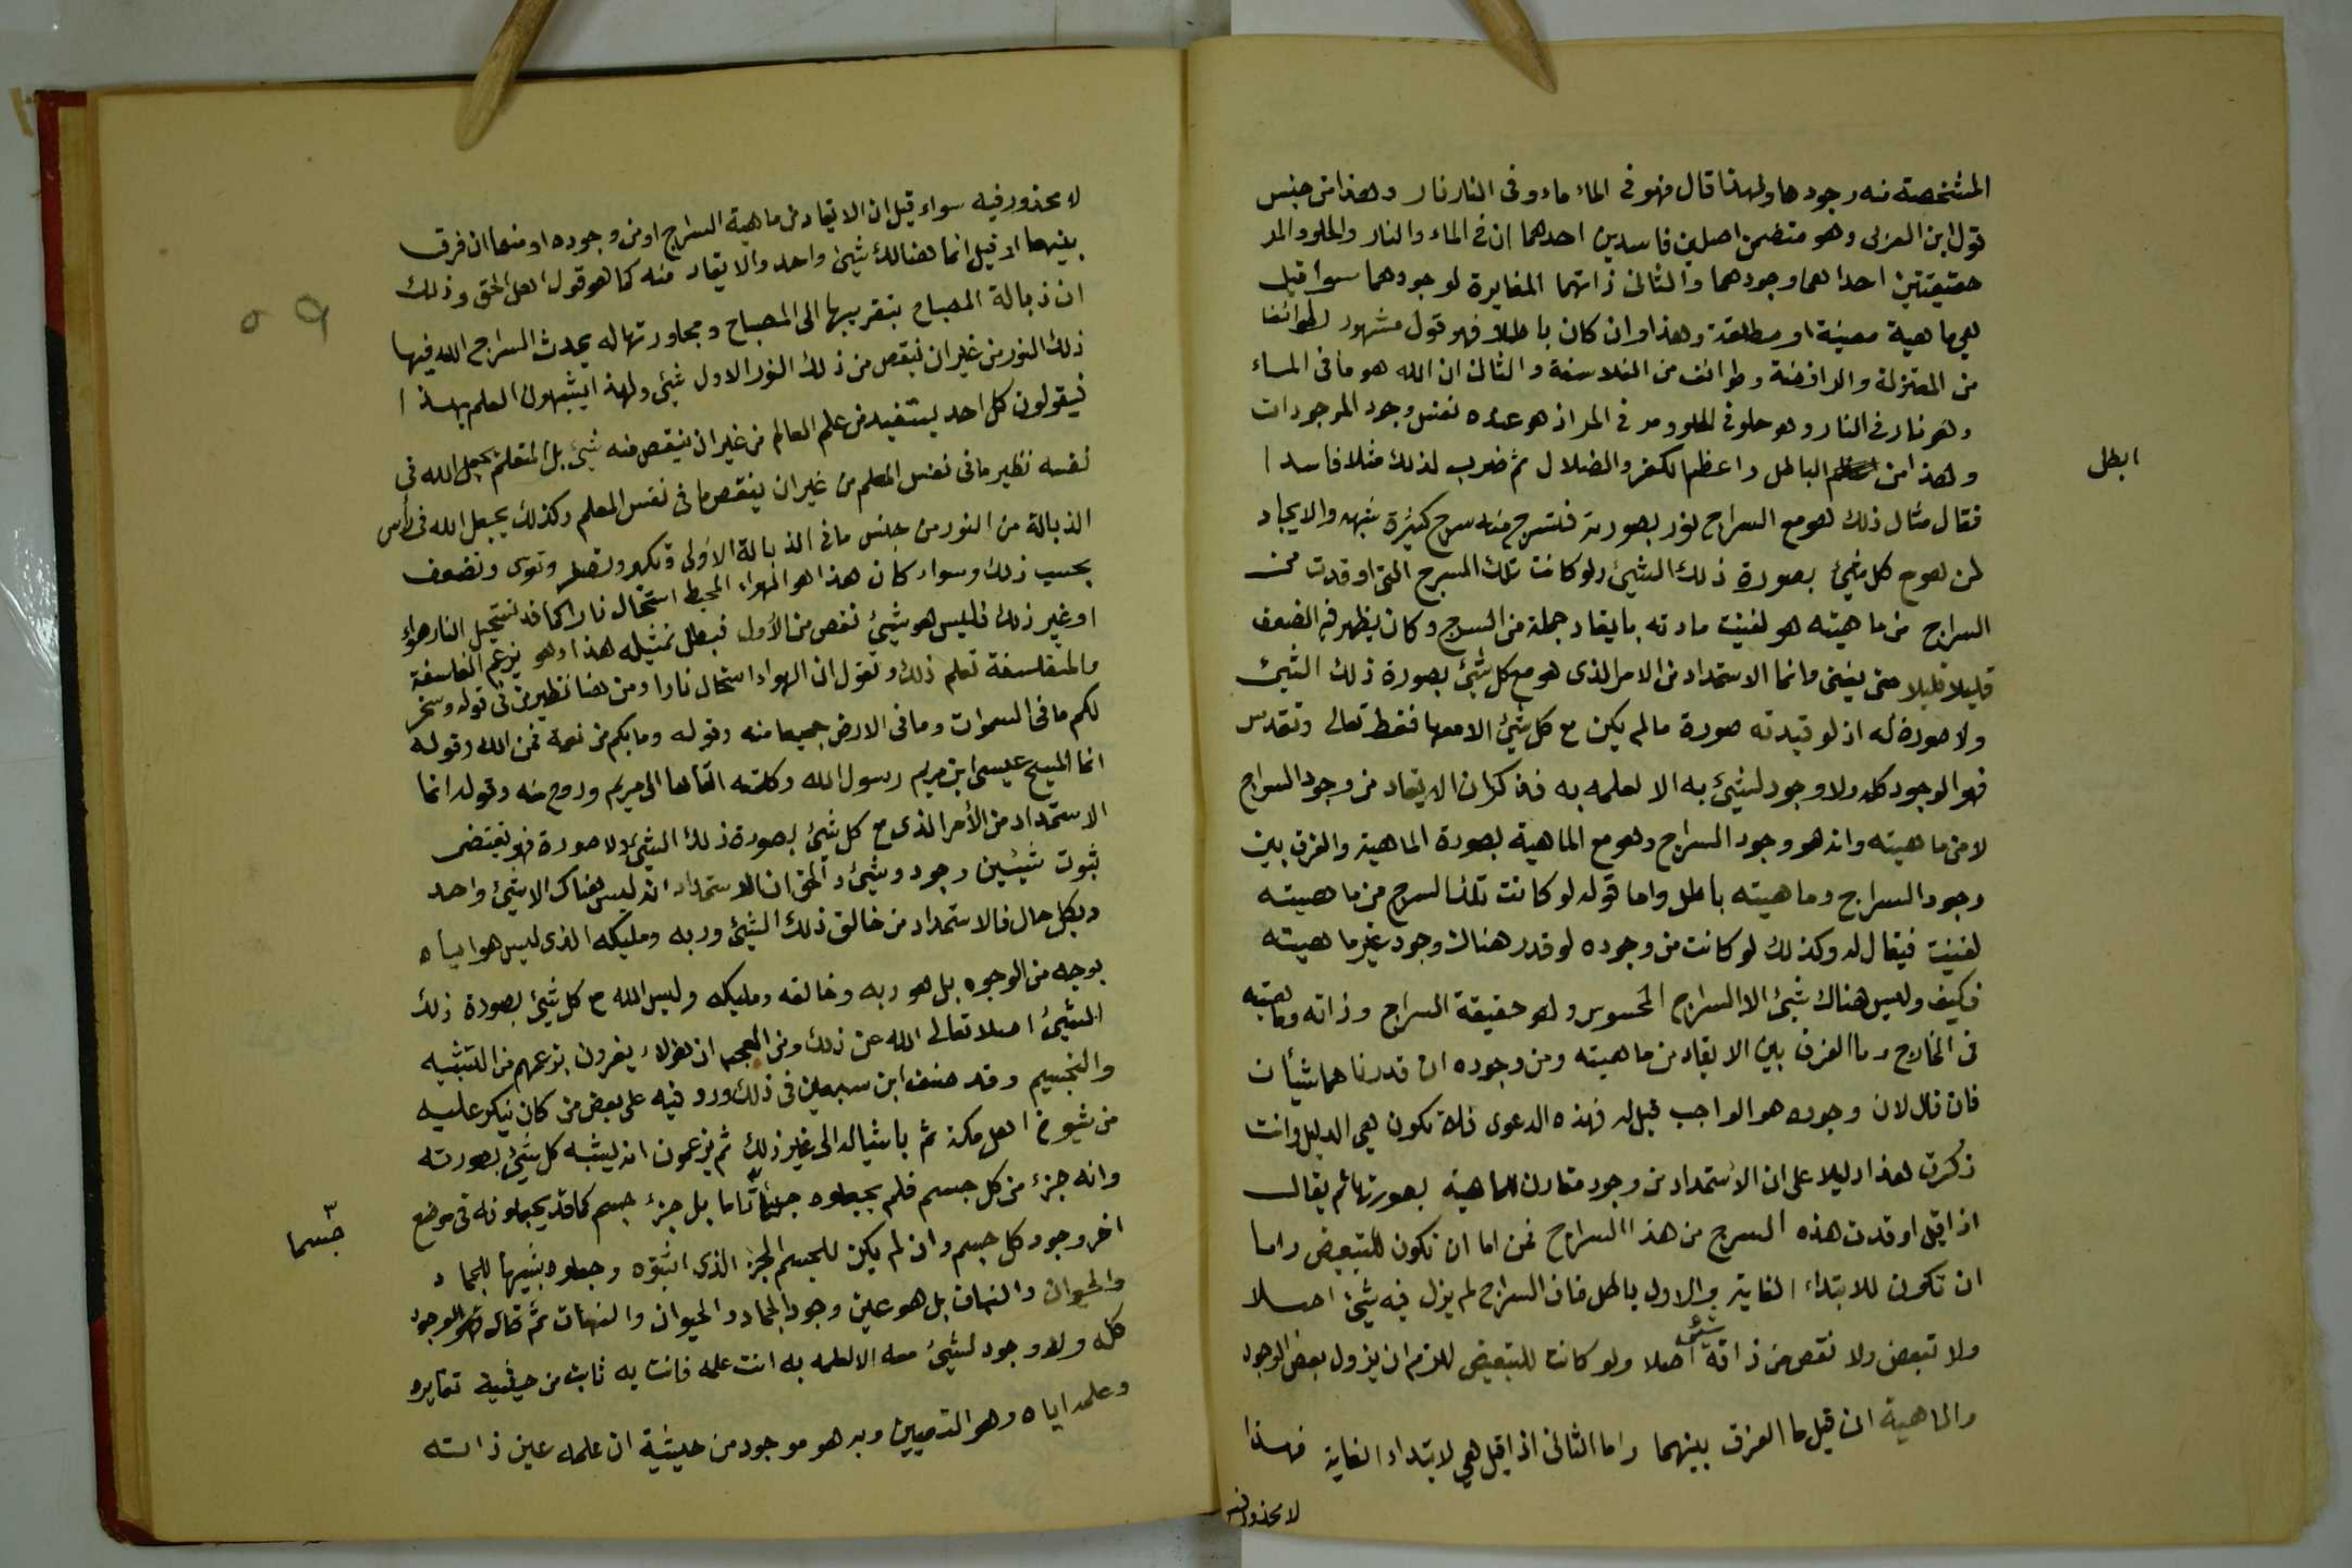 المشخصة منه وجودها ولهذا قال فهو في الماء ماء وفي النار نار وهذا من جنس
قول ابن العربي وهو متضمن اصلين فاسدين احدهما ان في الماء والنار والحلو والمر
حقيقتين احداهما وجودهما والثاني ذاتهما المغايرة لوجودهما سواء قيل
هي ماهية معينة او مطلقة وهذا وان كان باطلا فهو قول مشهور لطوائف
من المعتزلة والرافضة وطوائف من الفلاسفة والثاني ان الله هو ما في الماء
وهو نار في النار وهو حلو في الحلو ومر في المر اذ هو عنده نفس وجود الموجودات
وهذا من الباطل واعظم الكفر والضلال ثم ضرب لذلك مثلا فاسدا
ابطل
فقال مثال ذلك هو مع السراج نور بصورته فتسرج منه سرج كثيرة شبهه والايجاد
لمن هو مع كل شيئ بصورة ذلك الشيئ ولو كانت تلك السرج التي اوقدت من
السراج من ماهيته هو لفنيت مادته بايقاد جملة من السرج وكان يظهر فيه الضعف
قليلا قليلا حتى يفنى وانما الاستمداد من الامر الذي هو مع كل شيئ بصورة ذلك الشيئ
ولا صورة له اذ لو قيدته صورة ما لم يكن مع كل شيئ الا معها فقط تعالى وتقدس
فهو الوجود كله ولا وجود لشيئ به الا لعلمه به فذكر ان الايقاد من وجود السراج
لا من ماهيته وانه هو وجود السراج وهو مع الماهية بصورة الماهية والفرق بين
وجود السراج وماهيته باطل واما قوله لو كانت تلك السرج من ماهيته
لفنيت فيقال له وكذلك لو كانت من وجوده لو قدر هناك وجود غير ماهيته
فكيف وليس هناك شيئ الا السراج المحسوس وهو حقيقة السراج وذاته وماهيته
في الخارج وما الفرق بين الايقاد من ماهيته ومن وجوده ان قدرنا هما شيأن
فان قال لان وجوده هو الواجب قيل له فهذه الدعوى فلا تكون هي الدليل وانت
ذكرت هذا دليلا على ان الاستمداد من وجود مقارن الماهية بصورتها ثم يقال
اذا قيل اوقدت هذه السرج من هذا السراج فمن اما ان تكون للتبعيض واما
ان تكون للابتداء الغاية والاول باطل فان السراج لم يزل فيه شيئ اصلا
ولا تبعض ولا نقص من ذاته شيئ اصلا ولو كانت للتبعيض للزم ان يزول بعض الوجود
والماهية ان قيل ما الفرق بينهما واما الثاني اذا قيل هي لابتداء الغاية فهذا
لا محذور فيه
لا محذور فيه سواء قيل ان الايقاد من ماهية السراج او من وجوده او منهما ان فرق
بينهما او قيل انما هنالك شيئ واحد والايقاد منه كما هو قول اهل الحق وذلك
ان ذبالة المصباح بتقريبها الى المصباح ومجاورتها له يحدث السراج الله فيها
ذلك النور من غير ان ينقص من ذلك النور الاول شيئ ولهذا يشبهون العلم بهذا
فيقولون كل احد يستفيد من علم العالم من غير ان ينقص منه شيئ بل المتعلم يجعل الله في
نفسه نظير ما في نفس المعلم من غير ان ينقص ما في نفس المعلم وكذلك يجعل الله في رأس
الذبالة من النور من جنس ما في الذبالة الاولى وتكبر وتصغر وتقوى وتضعف
بحسب ذلك وسواء كان هذا هو الهواء المحيط استحال نارا كما قد تستحيل النار هواء
او غير ذلك فليس هو شيئ نقص من الأول فبطل تمثيله هذا وهو يزعم الفلسفة
والمتفلسفة تعلم ذلك وتقول ان الهواء استحال نارا ومن هنا نظير من في قوله وسخر
لكم ما في السموات وما في الارض جميعا منه وقوله وما بكم من نعمة فمن الله وقوله
انما المسيح عيسى ابن مريم رسول الله وكلمته القاها الى مريم وروح منه وقوله انما
الاستمداد من الأمر الذي مع كل شيئ بصورة ذلك الشيئ ولا صورة فهو يقتضي
ثبوت شيئين وجود وشيئ والحق ان الاستمداد انه ليس هناك الا شيئ واحد
وبكل حال فالاستمداد من خالق ذلك الشيئ وربه ومليكه الذي ليس هو اياه
بوجه من الوجوه بل هو ربه وخالقه ومليكه وليس الله مع كل شيئ بصورة ذلك
الشيئ اصلا تعالى الله عن ذلك ومن العجب ان هؤلاء يفرون بزعمهم من التشبيه
والتجسيم وقد صنف ابن سبعين في ذلك ورد فيه على بعض من كان ينكر عليه
من شيوخ اهل مكة ثم باشياله الى غير ذلك ثم يزعمون انه يشبه كل شيئ بصورته
وانه جزء من كل جسم فلم يجعلوه تاما بل جزء جسم كما قد يجعلونه في موضع
جسما
اخر وجود كل جسم وان لم يكن للجسم الجزء الذي اثبتوه وجعلوه شبيها للجماد
والحيوان والنبات بل هو عين وجود الجماد والحيوان والنبات ثم قال فهو الوجود
كله ولا وجود لشيئ معه الا لعلمه به انت علمه فانت به ثابت من حيثية تغايره
وعلمه اياه وهو التعيين وبه هو موجود من حيثية ان علمه عين ذاته